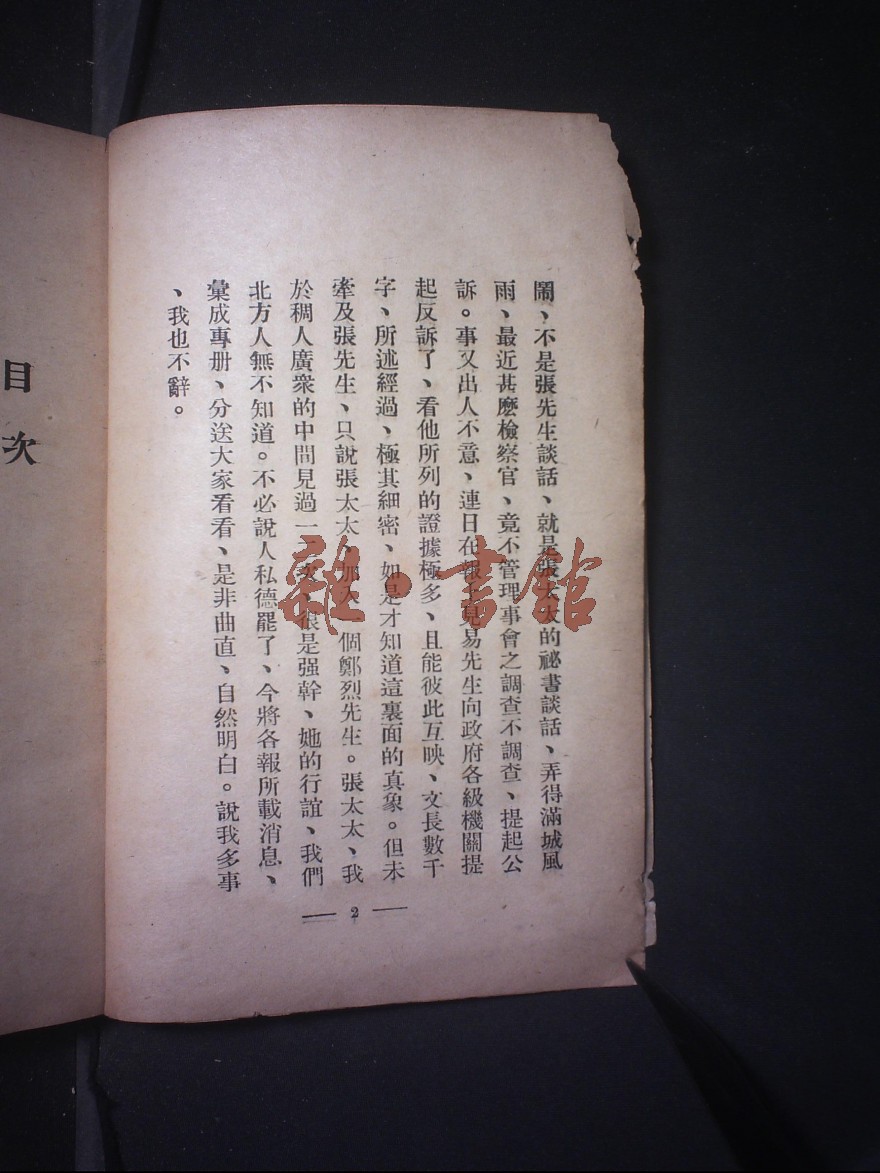 鬧、不是張先生談話、就是張太太的祕書談話、弄得滿城風
雨、最近甚麽檢察官、竟不管理事會之調查不調查、提起公
訴。事又出人不意、連日在報上見易先生向政府各級機關提
起反訴了、看他所列的證據極多、且能彼此互映、文長數千
字、所述經過、極其細密、如是才知道這裏面的真象。但未
牽及張先生、只說張太太、加次一個鄭烈先生。張太太、我
於稠人廣衆的中間見過一二次、很是强幹、她的行誼、我們
北方人無不知道。不必說人私德罷了、今將各報所載消息、
彙成專册、分送大家看看、是非曲直、自然明白。說我多事
、我也不辭。
2
目次
雜·書館